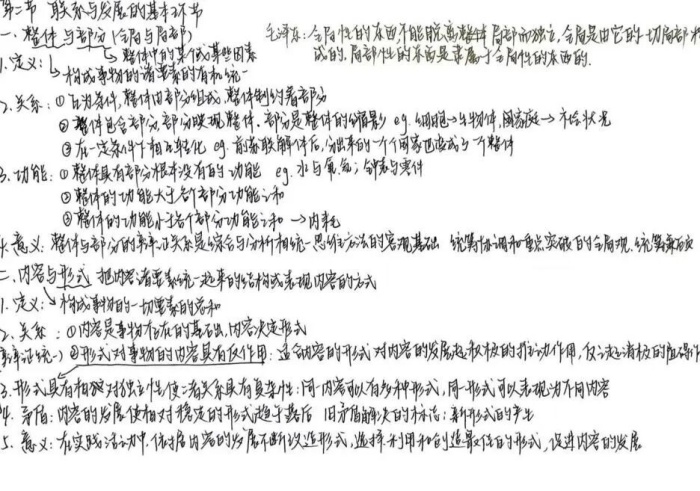 第二节 联系与发展的基本环节
一、整体与部分(全局与局部)
毛泽东:全局性的东西不能脱离整体局部而独立,全局是由它的一切局部构成的,局部性的东西是隶属于全局性的东西的.
1.定义:整体中的某个或某些因素
构成事物的诸要素的有机统一
2.关系:①互为条件,整体由部分组成,整体制约着部分
②整体包含部分,部分映现整体,部分是整体的缩影 eg.细胞→生物体,国家庭→社会状况
③在一定条件下相互转化 eg.前苏联解体后,分出来的一个个国家也变成了一个整体
3.功能:①整体具有部分根本没有的功能 eg.水与氢氧;钟表与零件
②整体的功能大于各个部分功能之和
③整体的功能小于各个部分功能之和→内耗
4.意义:整体与部分的辩证关系是综合与分析相统一思维方法的客观基础 统筹协调和重点突破的全局观.统筹兼顾
二、内容与形式 把内容诸要素统一起来的结构或表现内容的方式
1.定义:构成事物的一切要素的总和
2.关系:①内容是事物存在的基础,内容决定形式
(辩证统一)②形式对事物的内容具有反作用:适合内容的形式对内容的发展起积极的推动作用,反之起消极的阻碍作用
3.形式具有相对独立性使二者关系具有复杂性:同一内容可以有多种形式,同一形式可以表现为不同内容
4.矛盾:内容的发展使相对稳定的形式趋于落后 旧矛盾解决的标志:新形式的产生
5.意义:在实践活动中,依据内容的发展不断改造形式,选择、利用和创造最佳的形式,促进内容的发展